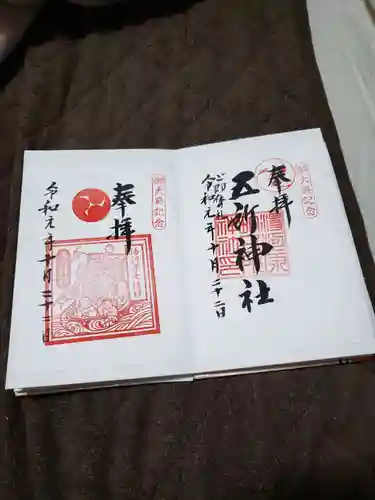 御大典記念
奉拝
五所神社
ご即位礼
令和元年十月二十二日
御大典記念
奉拝
令和元年十月二十二日